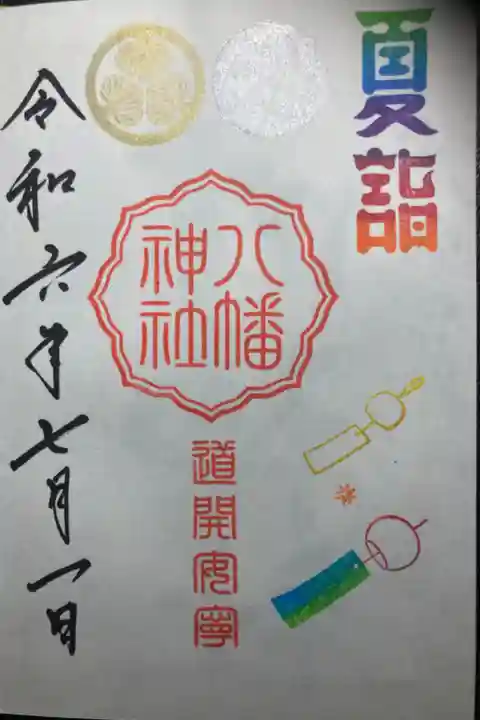 夏詣
八幡
神社
道開安寧
令和六年七月一日